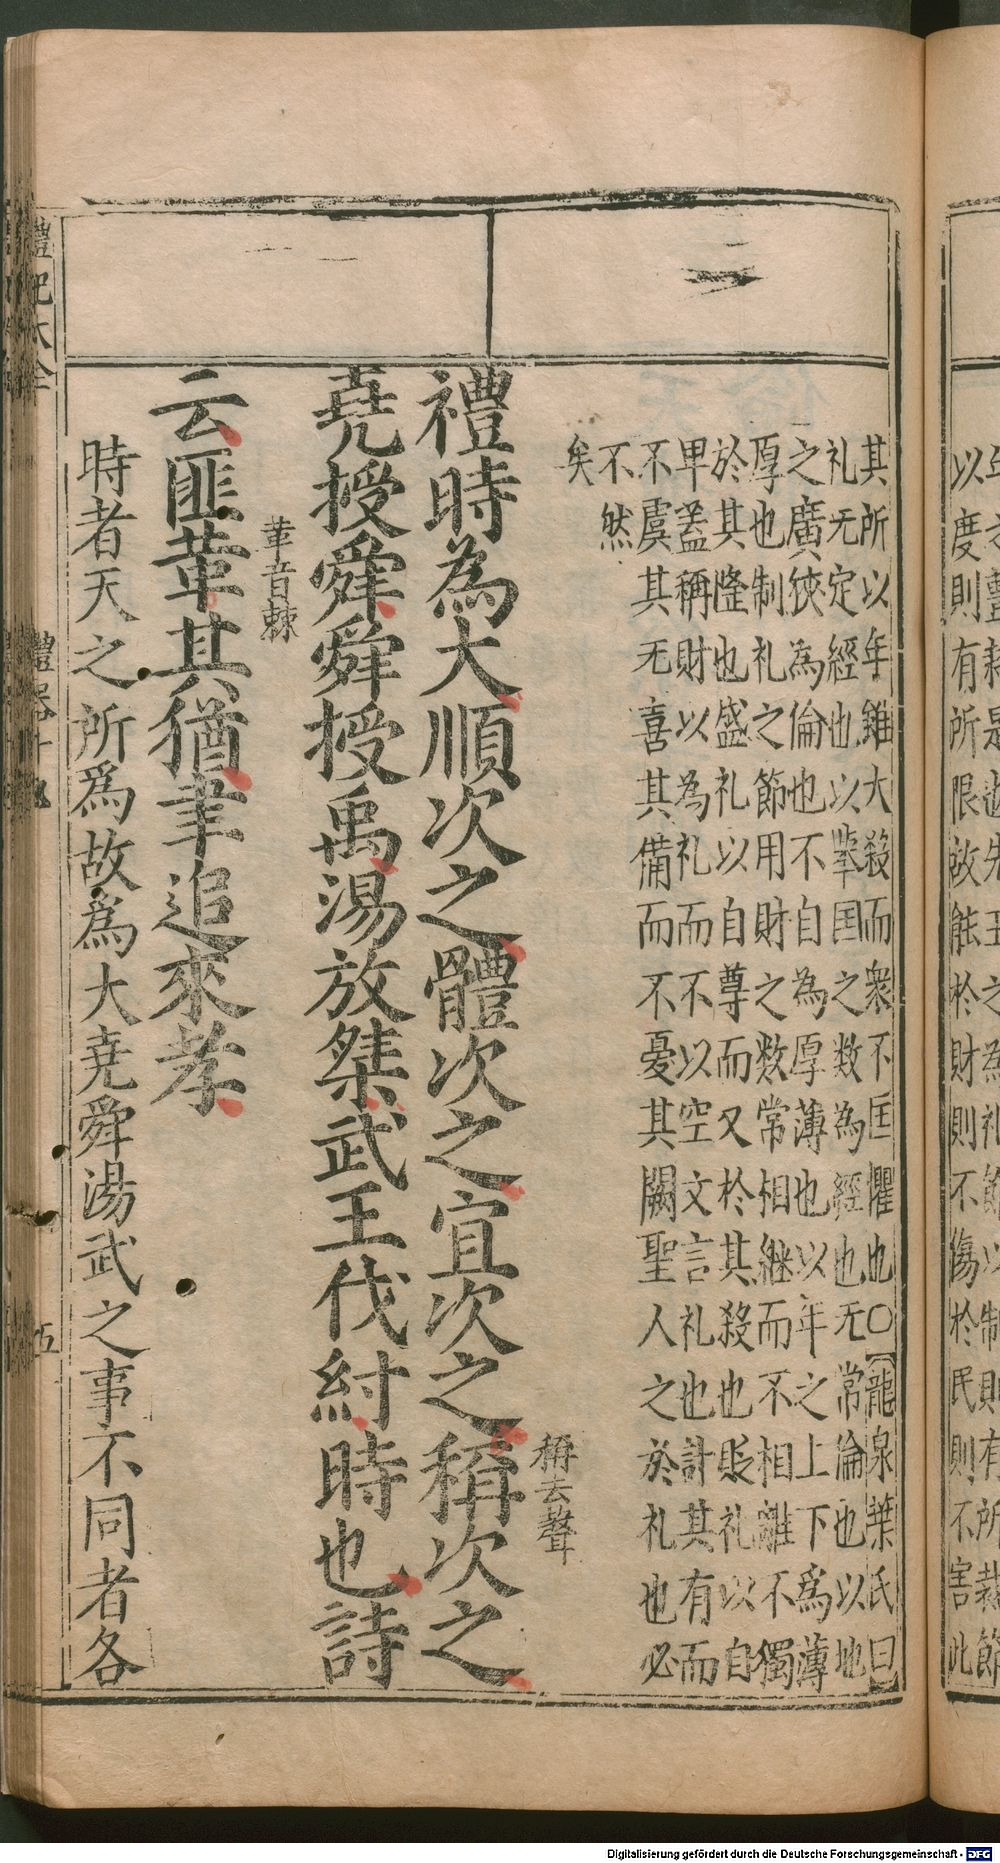 以度則有所限故能於財則不傷於民則不害此
其所以年雖大殺而衆不匡懼也〇【龍泉葉氏曰】
礼无定經也以举国之数為經也无常淪也以地
之廣狹為倫也不自為厚薄也以年之上下爲薄
厚也制礼之節用財之数常相継而不相離不獨
於其隆也盛礼以自尊而又於其殺也貶礼以自
卑蓋稱財以為礼而不以空文言礼也計其有而
不虞其无喜其備而不憂其闕聖人之於礼也必
不然
矣
禮時為大順次之體次之宜次之稱次之
稱去聲
堯授舜舜授禹湯放桀武王伐紂時也詩
云匪革其猶聿追來孝
革音棘
時者天之所爲故爲大堯舜湯武之事不同者各
禮記大全
禮器
五
Digitalisierung gefördert durch die Deutsche Forschungsgemeinschaft - DFG